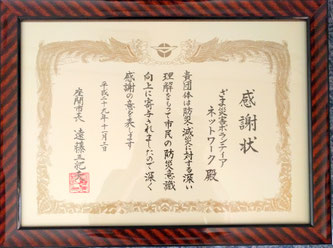 感謝状
ざま災害ボランティア
ネットワーク 殿
貴団体は防災・減災に対する深い
理解をもって市民の防災意識
向上に寄与されましたので深く
感謝の意を表します
平成二十九年十一月三日
座間市長 遠藤三紀夫